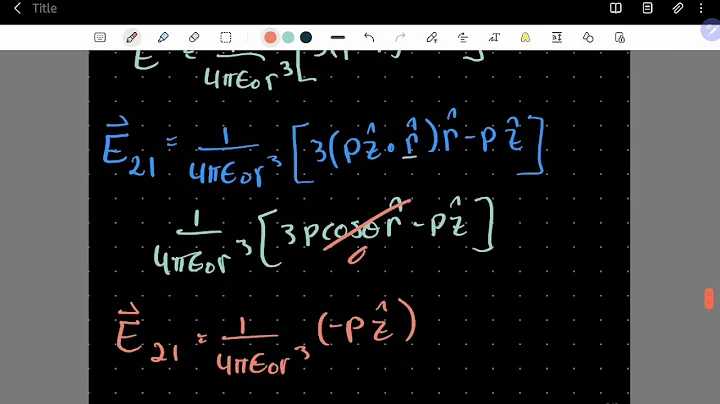 Title
4πε₀r³
E⃗₂₁ = 1/4πε₀r³ [3(pẑ • r̂)r̂ - pẑ]
1/4πε₀r³ [3pcosθ r̂ - pẑ]
0
E⃗₂₁ = 1/4πε₀r³ (-pẑ)